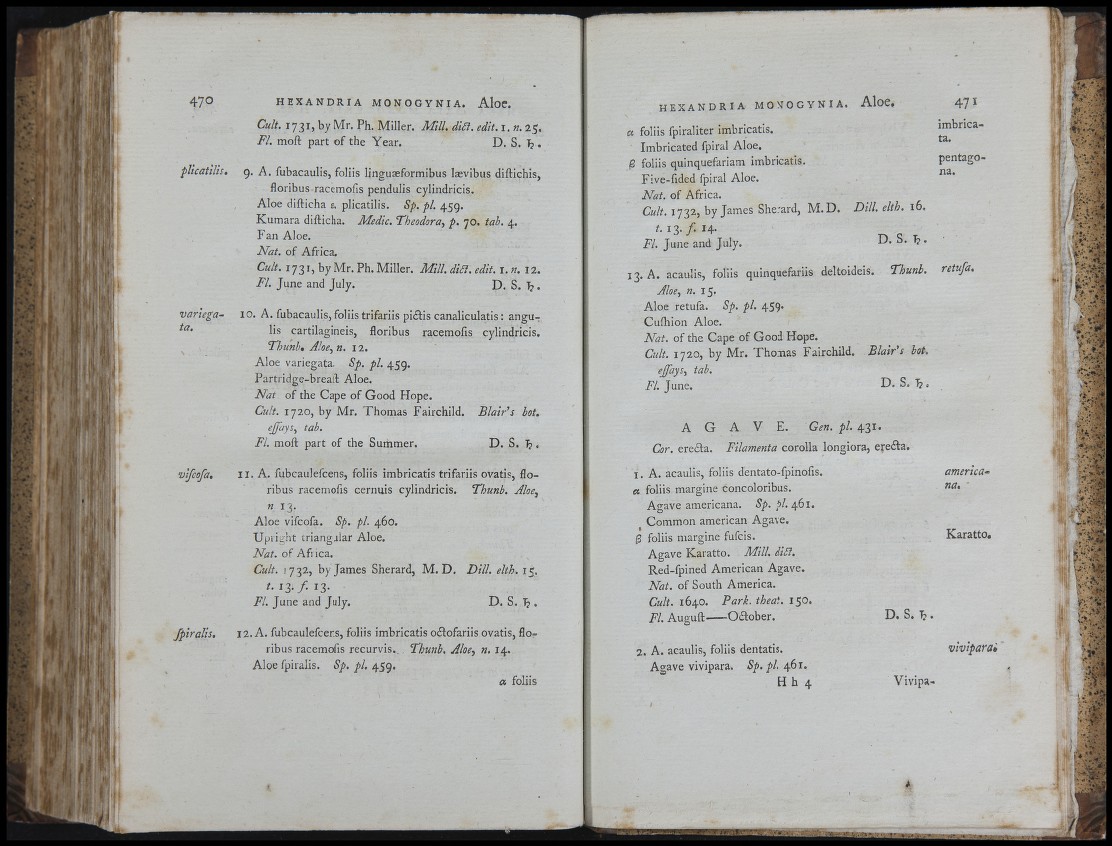 470 HEXANDRIA MONOGYNIA. Aloe.
Cult. 1731, by Mr. Ph. Miller. Mill. dict. edit. 1. n. 25.
Fl. moſt part of the Year. D. S. ♄.
plicatilis. 9. A. ſubacaulis, foliis linguæformibus lævibus diſtichis,
floribus racemoſis pendulis cylindricis.
Aloe diſticha ε. plicatilis. Sp. pl. 459.
Kumara diſticha. Medic. Theodora, p. 70. tab. 4.
Fan Aloe.
Nat. of Africa.
Cult. 1731, by Mr. Ph. Miller. Mill. dict. edit. 1. n. 12.
Fl. June and July. D. S. ♄.
variega- 10. A. ſubacaulis, foliis trifariis pictis canaliculatis: angu-
ta. lis cartilagineis, floribus racemoſis cylindricis.
Thunb. Aloe, n. 12.
Aloe variegata Sp. pl. 459.
Partridge-breaſt Aloe.
Nat of the Cape of Good Hope.
Cult. 1720, by Mr. Thomas Fairchild. Blair's bot.
eſſays, tab.
Fl. moſt part of the Summer. D. S. ♄.
viſcoſa. 11. A. ſubcauleſcens, foliis imbricatis trifariis ovatis, flo-
ribus racemoſis cernuis cylindricis. Thunb. Aloe,
n 13.
Aloe viſcoſa. Sp. pl. 460.
Upright triangular Aloe.
Nat. of Africa.
Cult. 1732, by James Sherard, M. D. Dill. elth. 15.
t. 13. f. 13.
Fl. June and July. D. S. ♄.
ſpiralis. 12. A. ſubcauleſcers, foliis imbricatis octofariis ovatis, flo-
ribus racemoſis recurvis. Thunb. Aloe, n. 14.
Aloe ſpiralis. Sp. pl. 459.
α foliis
HEXANDRIA MONOGYNIA. Aloe. 471
α foliis ſpiraliter imbricatis. imbrica-
Imbricated ſpiral Aloe. ta.
β foliis quinquefariam imbricatis. pentago-
Five-ſided ſpiral Aloe. na.
Nat. of Africa.
Cult. 1732, by James Sherard, M. D. Dill. elth. 16.
t. 13. f. 14.
Fl. June and July. D. S. ♄.
13. A. acaulis, foliis quinquefariis deltoideis. Thunb. retuſa.
Aloe, n. 15.
Aloe retuſa. Sp. pl. 459.
Cuſhion Aloe.
Nat. of the Cape of Good Hope.
Cult. 1720, by Mr. Thomas Fairchild. Blair's bot.
eſſays, tab.
Fl. June. D. S. ♄.
A G A V E. Gen. pl. 431.
Cor. erecta. Filamenta corolla longiora, erecta.
1. A. acaulis, foliis dentato-ſpinoſis. america-
α foliis margine concoloribus. na.
Agave americana. Sp. pl. 461.
Common american Agave.
β foliis margine fuſcis. Karatto.
Agave Karatto. Mill. dict.
Red-ſpined American Agave.
Nat. of South America.
Cult. 1640. Park. theat. 150.
Fl. Auguſt——October. D. S. ♄.
2. A. acaulis, foliis dentatis. vivipara.
Agave vivipara. Sp. pl. 461.
H h 4 Vivipa-